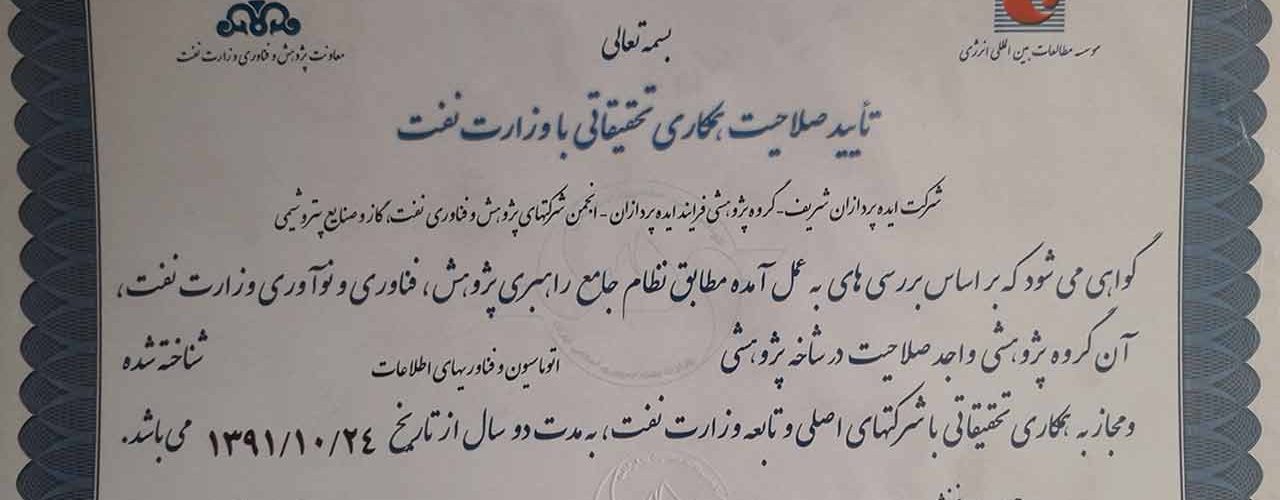 موسسه مطالعات بین المللی انرژی
بسمه تعالی
معاونت پژوهش و فناوری وزارت نفت
تأیید صلاحیت همکاری تحقیقاتی با وزارت نفت
شرکت ایده پردازان شریف - گروه پژوهشی فرایند ایده پردازان - انجمن شرکتهای پژوهش و فناوری نفت، گاز و صنایع پتروشیمی
گواهی می شود که بر اساس بررسی های به عمل آمده مطابق نظام جامع راهبری پژوهش، فناوری و نوآوری وزارت نفت،
آن گروه پژوهشی واجد صلاحیت در شاخه پژوهشی اتوماسیون و فناوریهای اطلاعات شناخته شده
و مجاز به همکاری تحقیقاتی با شرکتهای اصلی و تابعه وزارت نفت، به مدت دو سال از تاریخ ۱۳۹۱/۱۰/۲۴ می باشد.